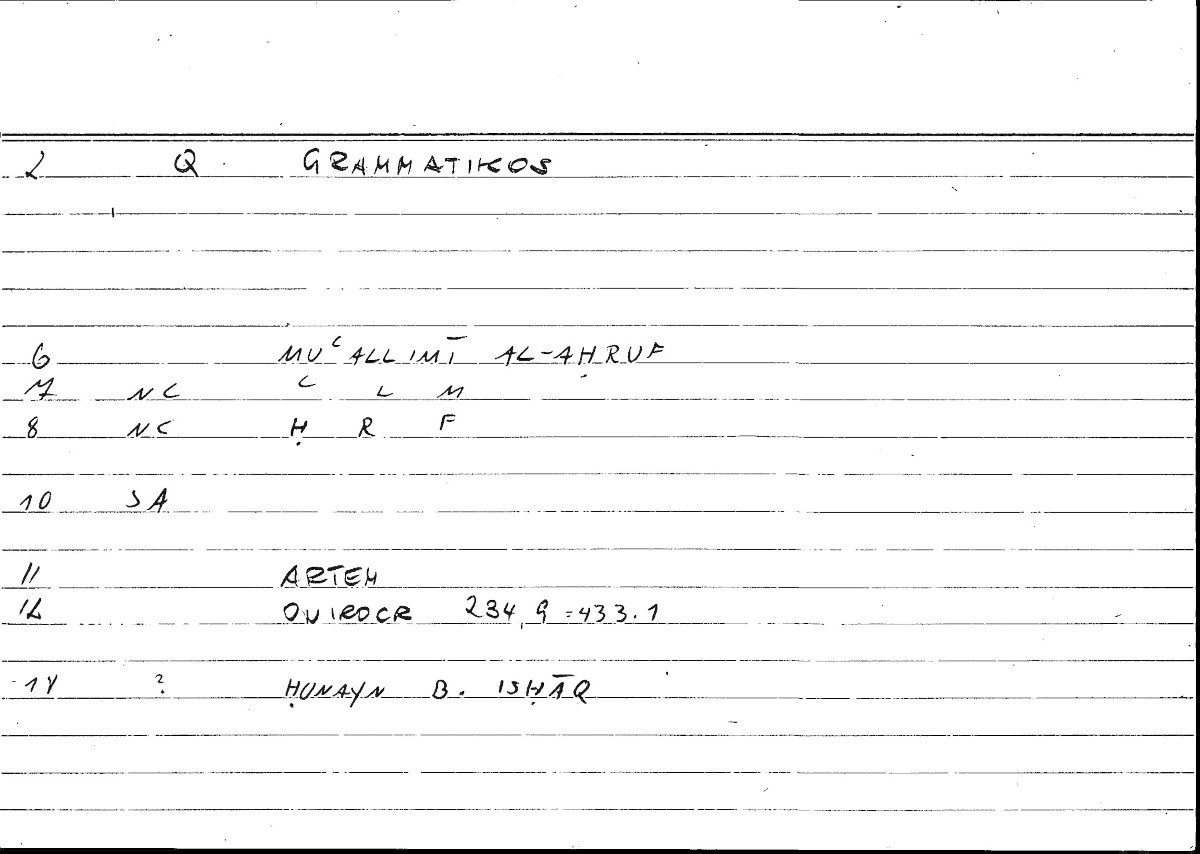 2 Q GRAMMATIKOS
6 MUʿALLIMĪ AL-AḤRUF
7 NC ʿ L M
8 NC Ḥ R F
10 SA
11 ARTEM
12 ONIROCR 234,9 =433.1
14 ? ḤUNAYN B. ISḤĀQ